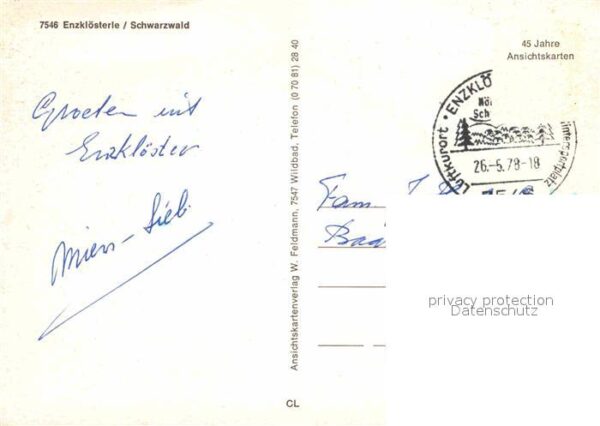 7546 Enzklösterle / Schwarzwald
45 Jahre
Ansichtskarten
Groeten uit
Enzklöster
Mien - Sieb
Ansichtskartenverlag W. Feldmann, 7547 Wildbad, Telefon (0 70 81) 28 40
Luftkurort • ENZKLÖ
26.-5.78-18
Fam
Bad
privacy protection
Datenschutz
CL